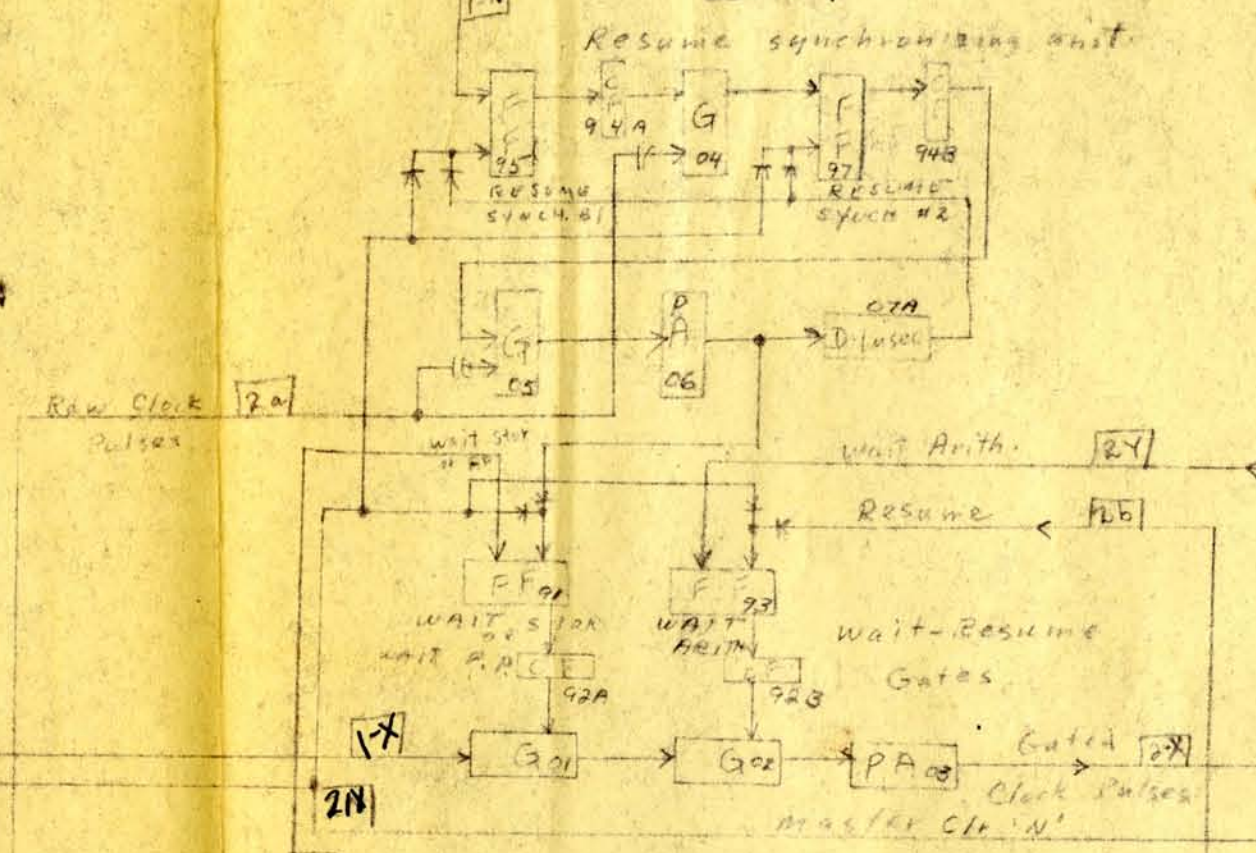 Resume synchronizing unit
FF
95
RESUME
SYNCH. #1
CF
94A
G
04
FF
97
RESUME
SYNCH #2
CF
94B
G
05
PA
06
07A
D 1 µsec
Raw Clock
Pulses
2a
wait stor
or PP
wait Arith.
2Y
Resume
2b
FF 91
WAIT STOR
or
WAIT P.P.
CF
92A
FF 93
WAIT
ARITH
CF
92B
Wait-Resume
Gates
1-X
G01
G02
PA 03
Gated
Clock Pulses
2-X
Master Clr 'N'